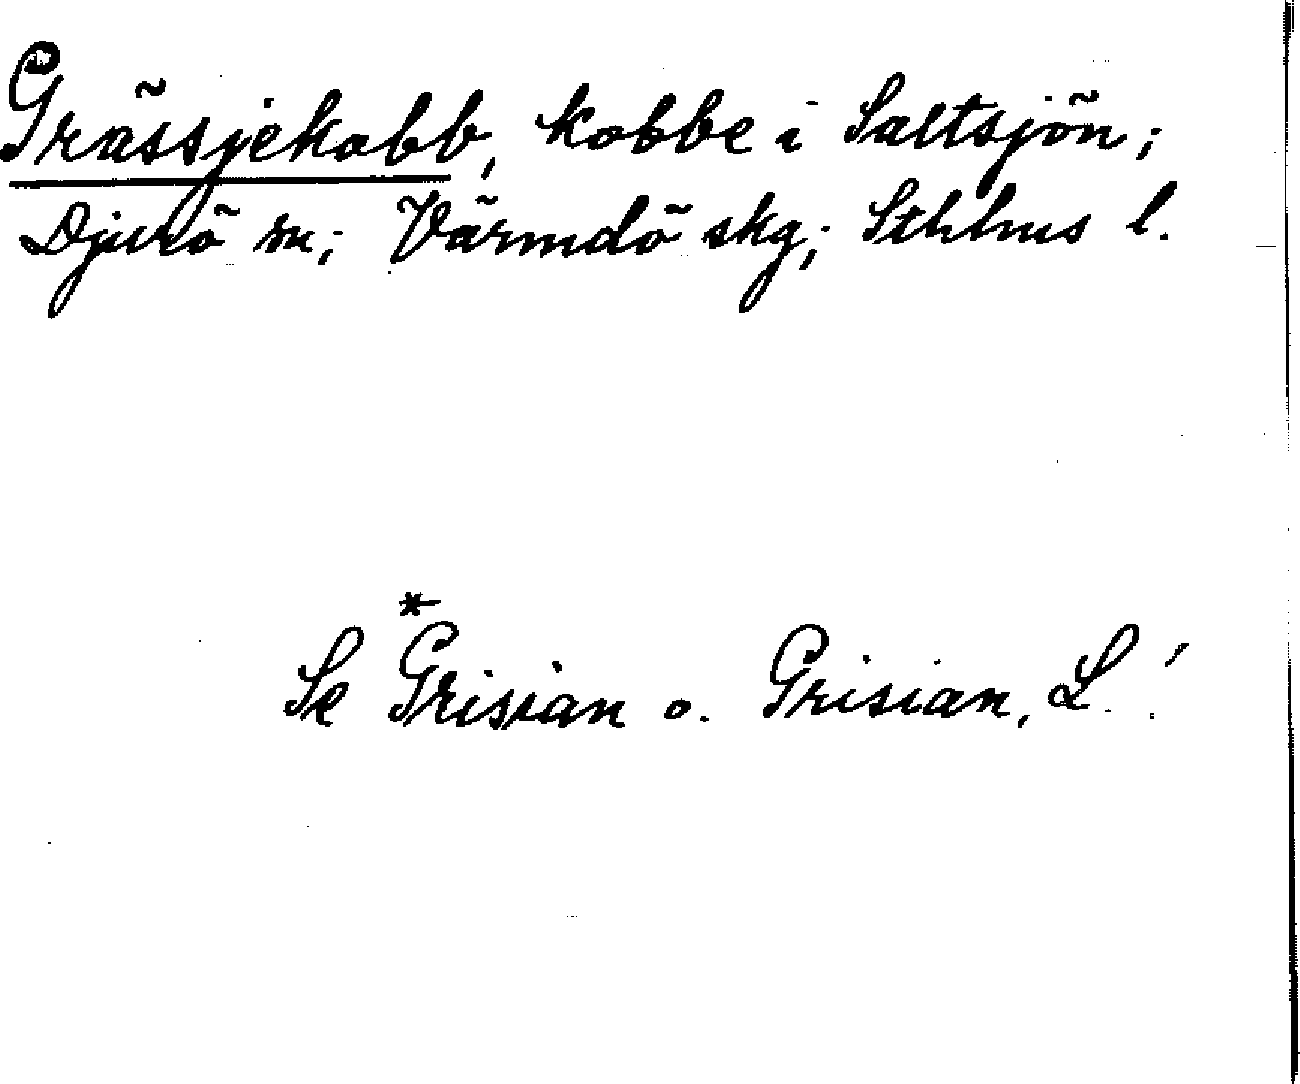 Grässjekobb, kobbe i Saltsjön;
Djurö sn; Värmdö skg; Sthlms l.
Se *Grisian o. Grisian, L.!